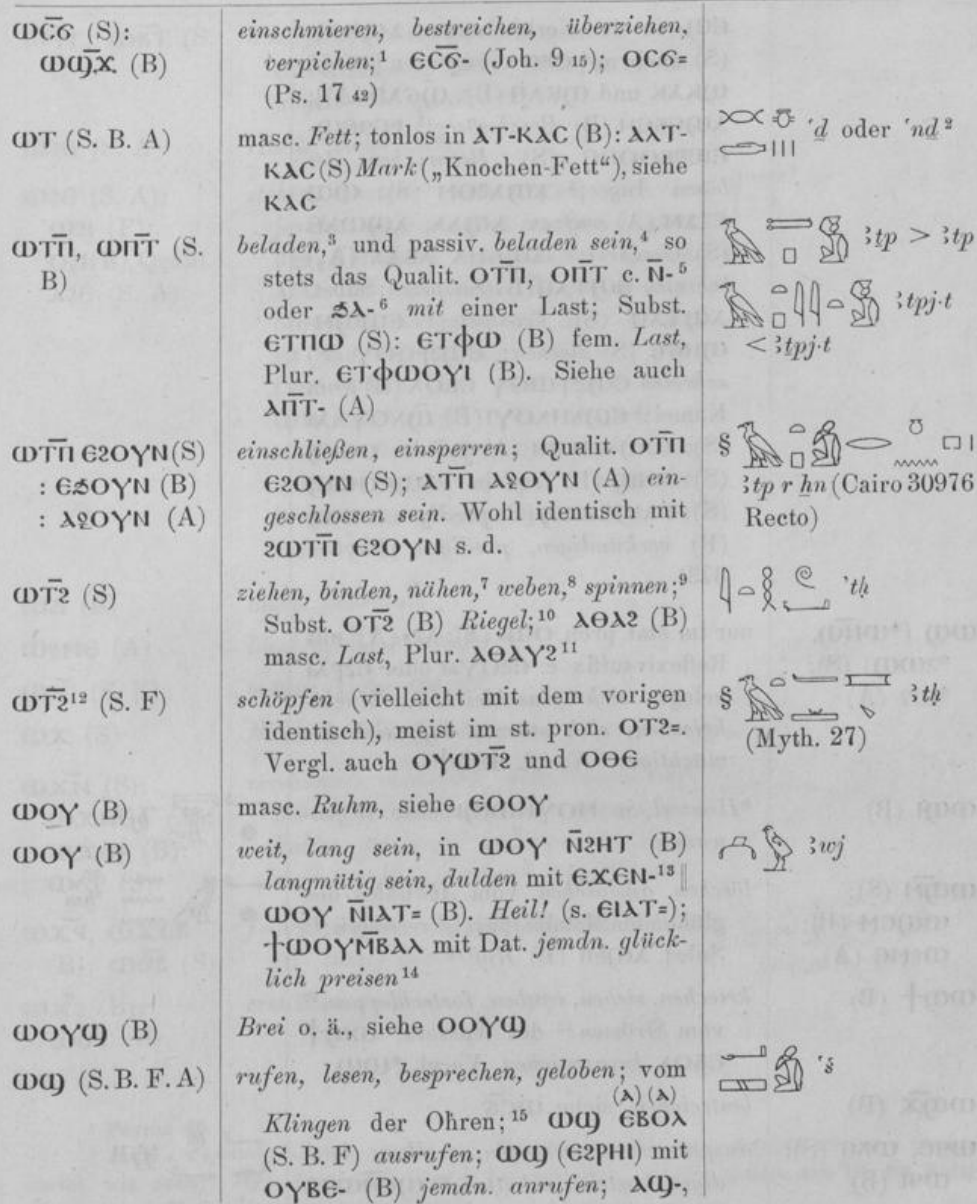 ⲱⲥ̅ϭ̅ (S): einschmieren, bestreichen, überziehen,
ⲱϣ̅ϫ̅ (B) verpichen;¹ ⲉⲥ̅ϭ̅- (Joh. 9 15); ⲟⲥϭ=
(Ps. 17 42)
ⲱⲧ (S. B. A) masc. Fett; tonlos in ⲁⲧ-ⲕⲁⲥ (B): ⲁⲁⲧ- ꜥḏ oder ꜥnḏ ²
ⲕⲁⲥ (S) Mark („Knochen-Fett“), siehe
ⲕⲁⲥ
ⲱⲧⲡ̅, ⲱⲡⲧ (S. beladen,³ und passiv. beladen sein,⁴ so ꜣṯp > ꜣtp
B) stets das Qualit. ⲟⲧⲡ̅, ⲟⲡ̅ⲧ c. ⲛ̅-⁵
oder ϧⲁ-⁶ mit einer Last; Subst. ꜣtpj·t
ⲉⲧⲡⲱ (S): ⲉⲧⲫⲱ (B) fem. Last, < ꜣṯpj·t
Plur. ⲉⲧⲫⲱⲟⲩⲓ (B). Siehe auch
ⲁⲡ̅ⲧ- (A)
ⲱⲧⲡ̅ ⲉϩⲟⲩⲛ (S) einschließen, einsperren; Qualit. ⲟⲧⲡ̅ §
: ⲉϧⲟⲩⲛ (B) ⲉϩⲟⲩⲛ (S); ⲁⲧⲡ̅ ⲁϩⲟⲩⲛ (A) ein- ꜣtp r ẖn (Cairo 30976
: ⲁϩⲟⲩⲛ (A) geschlossen sein. Wohl identisch mit Recto)
ϩⲱⲧⲡ̅ ⲉϩⲟⲩⲛ s. d.
ⲱⲧϩ̅ (S) ziehen, binden, nähen,⁷ weben,⁸ spinnen;⁹ ꞽtḥ
Subst. ⲟⲧϩ̅ (B) Riegel;¹⁰ ⲁⲑⲁϩ (B)
masc. Last, Plur. ⲁⲑⲁⲩϩ¹¹
ⲱⲧϩ̅¹² (S. F) schöpfen (vielleicht mit dem vorigen § ꜣtḥ
identisch), meist im st. pron. ⲟⲧϩ=. (Myth. 27)
Vergl. auch ⲟⲩⲱⲧϩ̅ und ⲟⲑⲉ
ⲱⲟⲩ (B) masc. Ruhm, siehe ⲉⲟⲟⲩ
ⲱⲟⲩ (B) weit, lang sein, in ⲱⲟⲩ ⲛ̅ϩⲏⲧ (B) ꜣwj
langmütig sein, dulden mit ⲉϫⲉⲛ-¹³ ‖
ⲱⲟⲩ ⲛ̅ⲓⲁⲧ= (B). Heil! (s. ⲉⲓⲁⲧ=);
ϯⲱⲟⲩⲙ̅ⲃⲁⲗ mit Dat. jemdn. glück-
lich preisen¹⁴
ⲱⲟⲩϣ (B) Brei o. ä., siehe ⲟⲟⲩϣ
ⲱϣ (S. B. F. A) rufen, lesen, besprechen, geloben; vom ꜥš
(ⲁ) (ⲗ)
Klingen der Ohren;¹⁵ ⲱϣ ⲉⲃⲟⲗ
(S. B. F) ausrufen; ⲱϣ (ⲉϩⲣⲏⲓ) mit
ⲟⲩⲃⲉ- (B) jemdn. anrufen; ⲁϣ-,